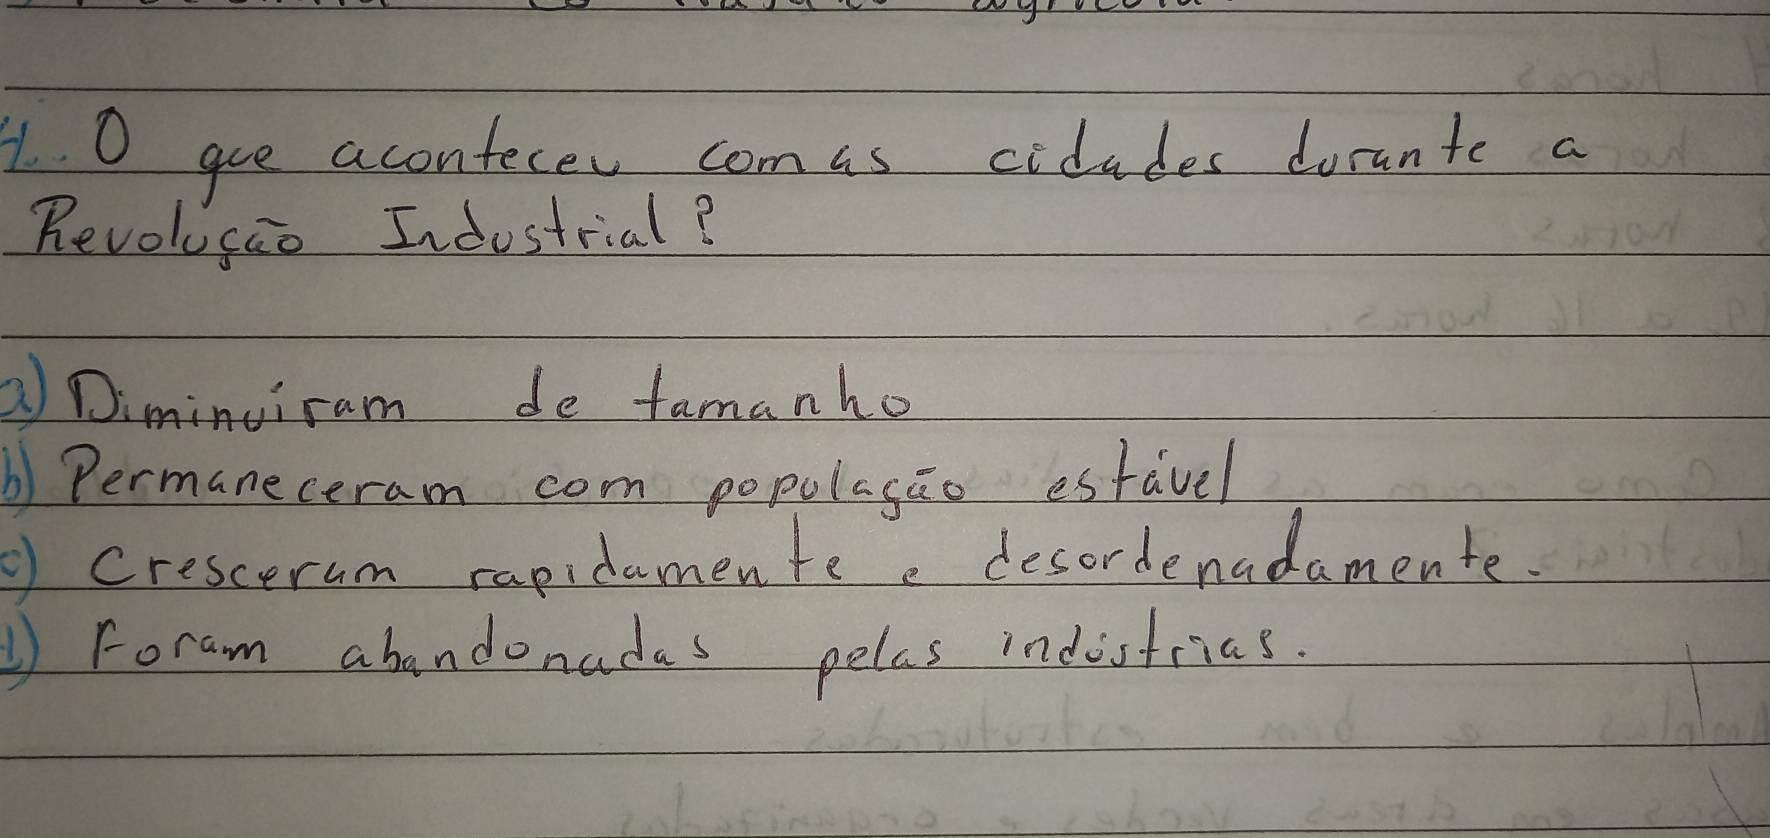 4. O que aconteceu com as cidades durante a
Revolução Industrial?
a) Diminuiram de tamanho
b) Permaneceram com população estável
c) Cresceram rapidamente e desordenadamente.
d) Foram abandonadas pelas indústrias.